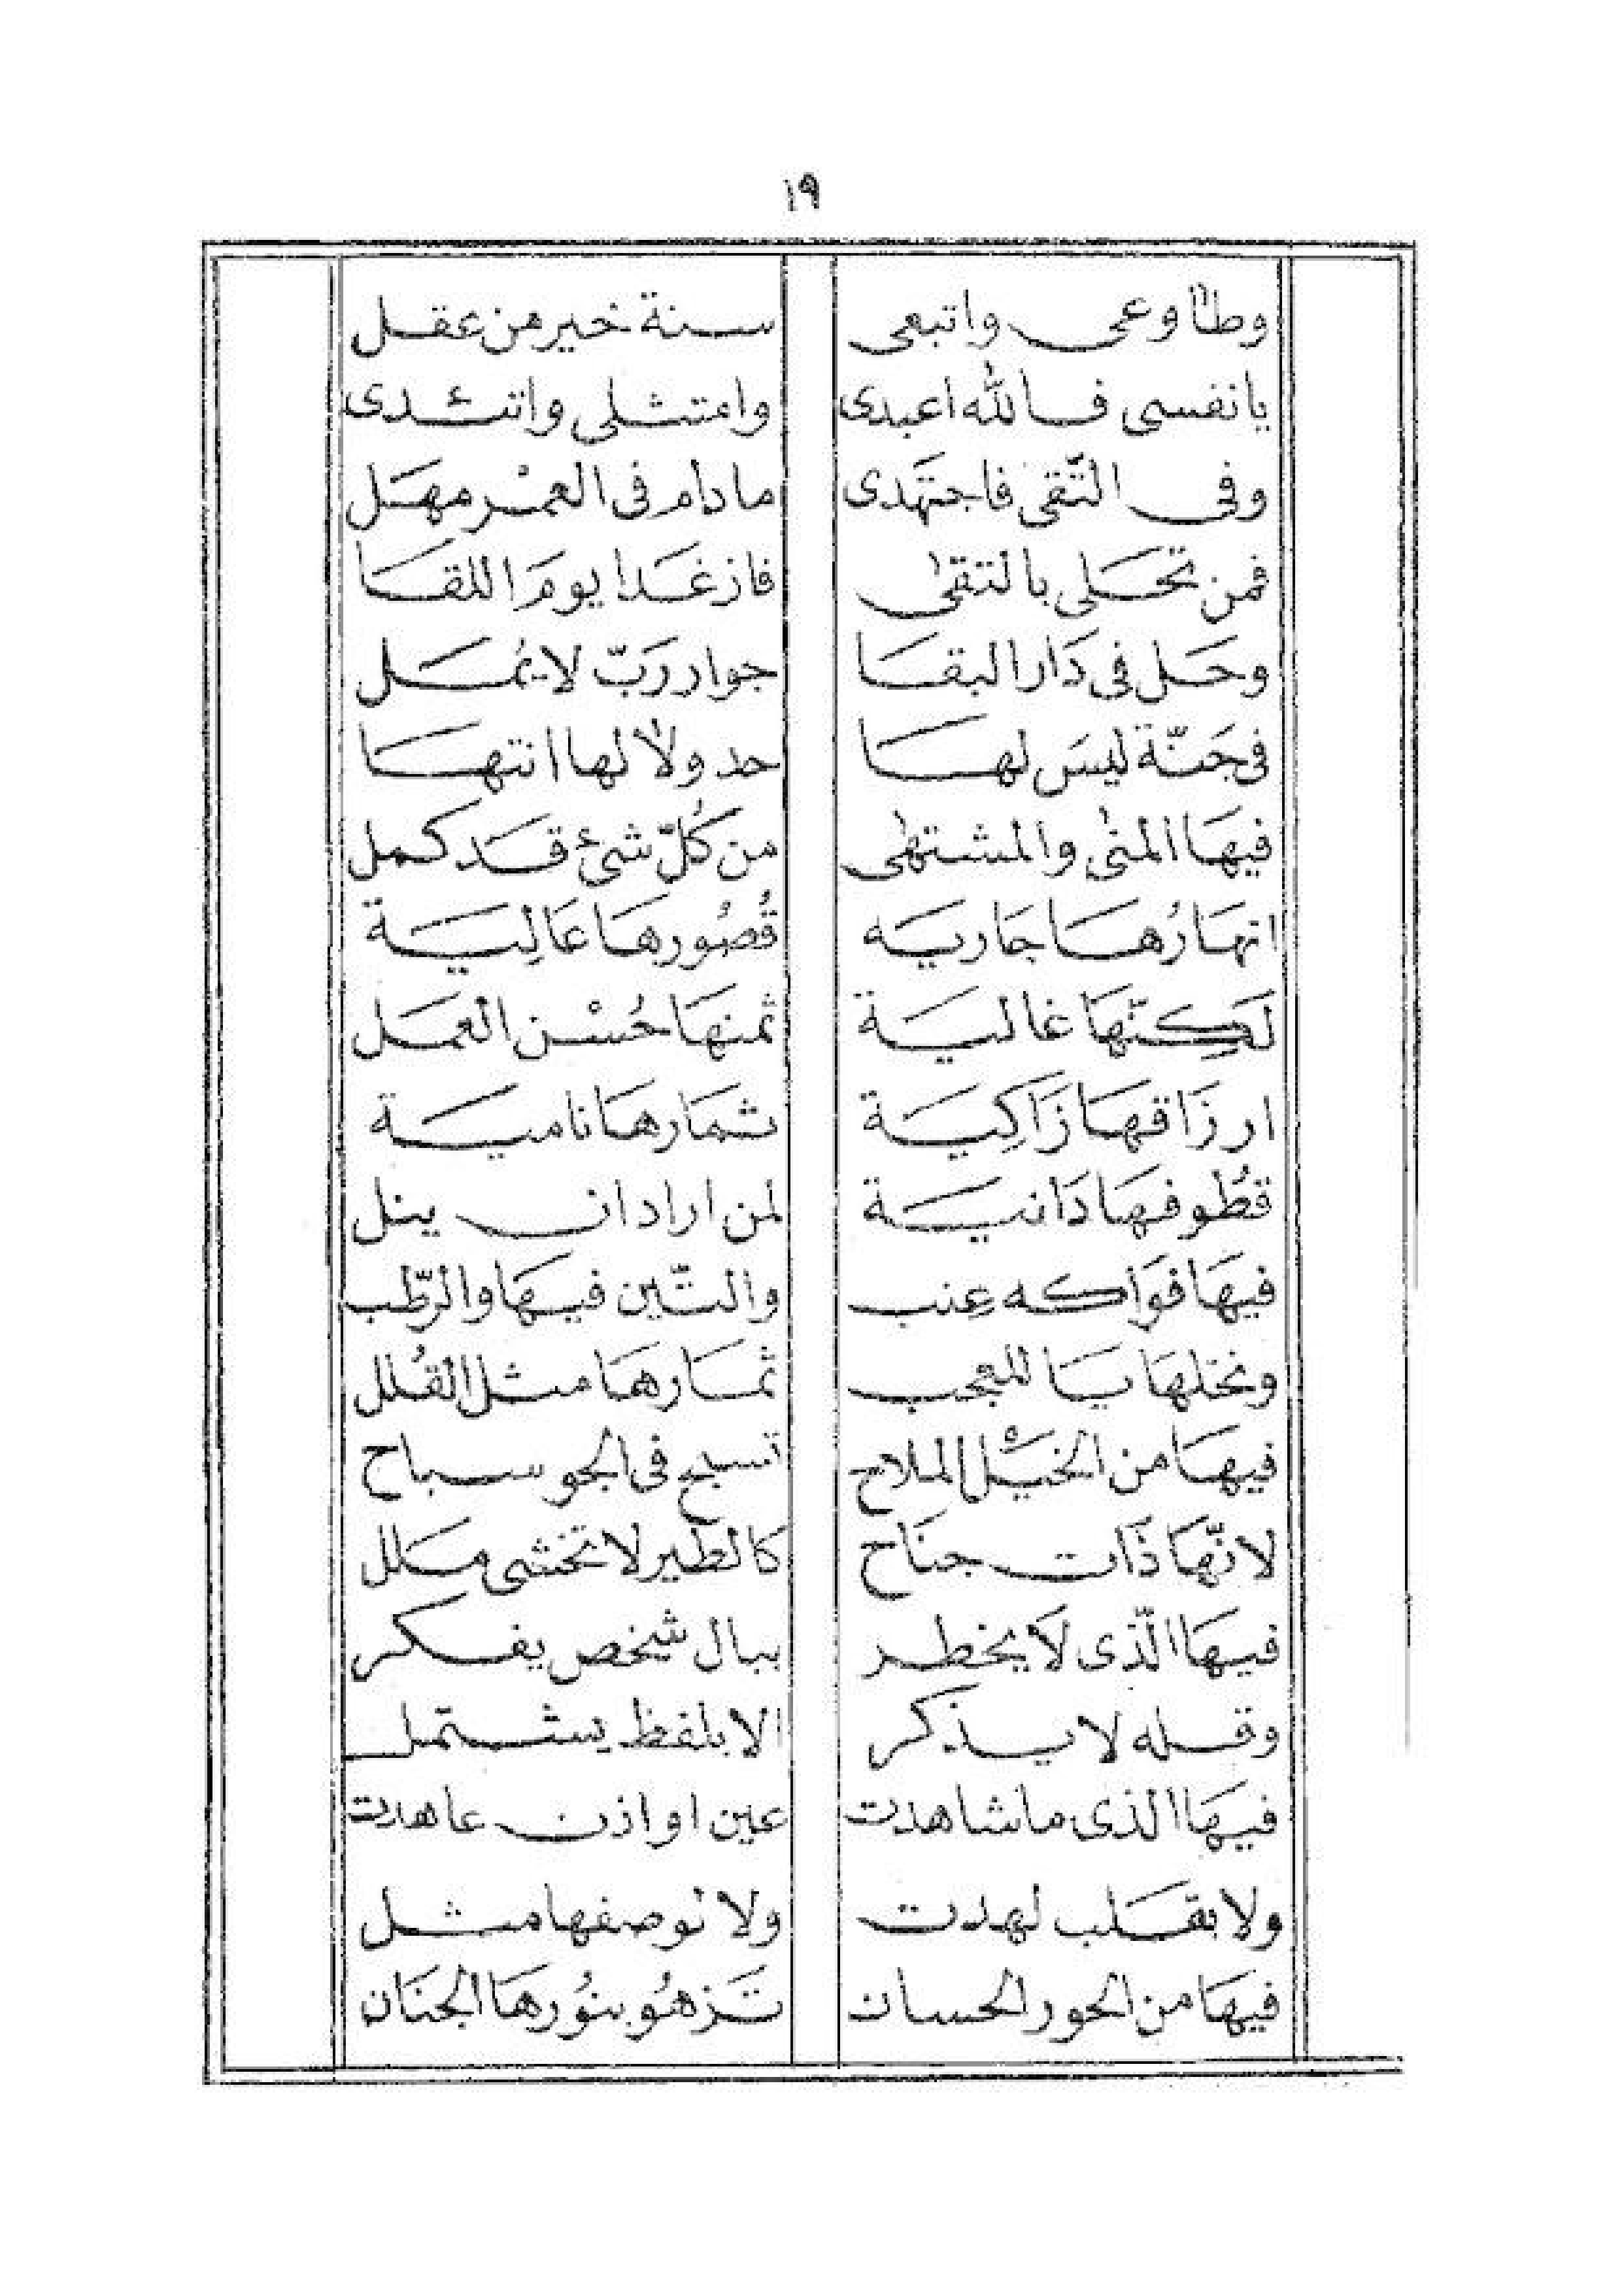 ١٩
وطاوعى واتبعى سنة خير من عقل
يا نفسى فالله اعبدى وامتثلى واتئدى
وفى التّقى فاجتهَدى مادام فى العمْر مهَل
فمن تحَلى بالتقى فاز غَدا يومَ اللقَا
وحَل فى دَار البقَا جوار رَبّ لا يُمَل
فى جَنّة ليسَ لهَا حد ولا لها انتهَا
فيهَا المنى والمشتهى من كُلّ شئ قَد كمل
انهَارُهَا جَاريَه قُصُورهَا عَالِيَة
لَكِنّهَا غاليَة ثمنهَا حُسْن العمَل
ارزَاقهَا زَاكِيَة ثمَارهَا ناميَة
قطُوفهَا دَانيَة لمن اراد ان ينل
فيهَا فَوَاكه عِنب والتّين فيهَا والرّطب
ونخلهَا يَا للعجب ثمَارهَا مثل القُلل
فيهَا من الخيْل الملاح تسبح فى الجو سباح
لانّهَا ذَات جنَاح كالطير لا تخشى مَلل
فيهَا الّذى لَا يخطر ببال شخص يفكر
وقله لا يذكر الا بلفظ يشتمل
فيهَا الذى ما شاهدت عين او اذن عاهدت
ولا بقَلب لهدت ولا نوصفها مثل
فيهَا من الحور الحسان تَزهُو بنوُرهَا الجنَان